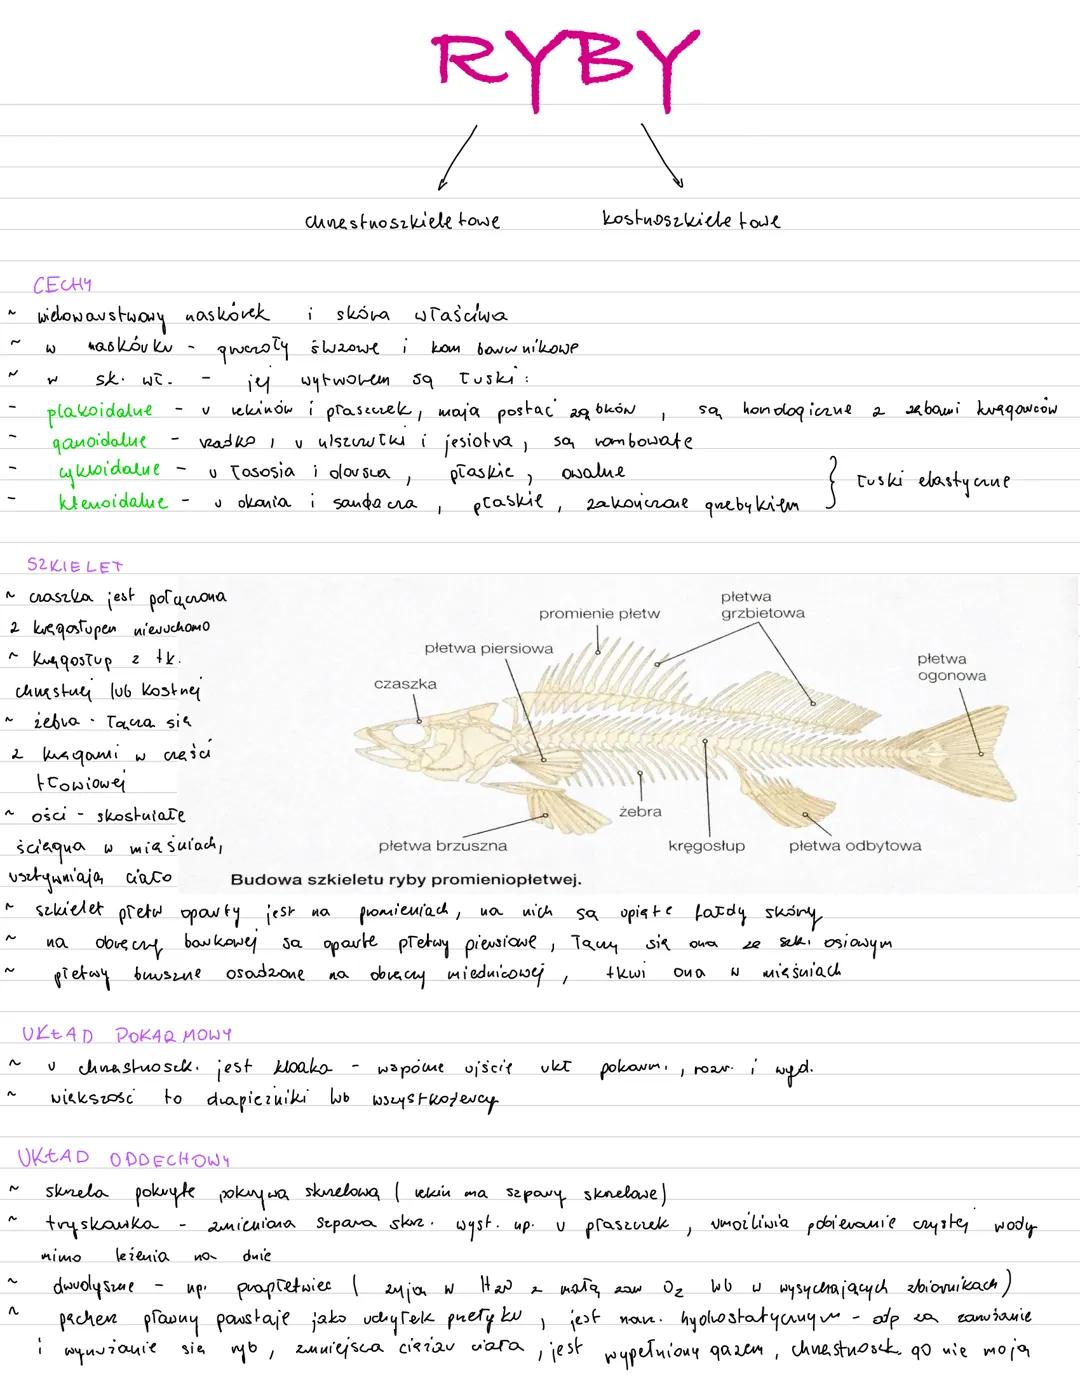 RYBY
chrzęstnoszkieletowe kostnoszkieletowe
CECHY
~ wielowarstwowy naskórek i skóra właściwa
~ w naskórku - gruczoły śluzowe i kom barwnikowe
~ w sk. wł. - jej wytworem są łuski:
- plakoidalne - u rekinów i płaszczek, mają postać ząbków, są homologiczne z zębami kręgowców
- ganoidalne - rzadko, u niszczuki i jesiotra, są rombowate
- cykloidalne - u łososia i dorsza, płaskie, owalne
- ktenoidalne - u okonia i sandacza, płaskie, zakończone grzebykiem
} łuski elastyczne
SZKIELET
~ czaszka jest połączona
z kręgosłupem nieruchomo
~ kręgosłup z tk.
chrzęstnej lub kostnej
~ żebra - łączą się
z kręgami w części
tłowiowej
~ ości - skostniałe
ścięgna w mięśniach,
usztywniają ciało
promienie płetw
płetwa
grzbietowa
płetwa piersiowa
płetwa
ogonowa
czaszka
żebra
płetwa brzuszna
kręgosłup
płetwa odbytowa
Budowa szkieletu ryby promieniopłetwej.
~ szkielet płetw oparty jest na promieniach, na nich są opięte fałdy skóry
~ na obręczy barkowej są oparte płetwy piersiowe, łączy się ona ze szki osiowym
~ płetwy brzuszne osadzone na obręczy miednicowej, tkwi ona w mięśniach
UKŁAD POKARMOWY
~ u chrzęstnoszk. jest kloaka - wspólne ujście ukł pokarm., rozr. i wyd.
~ większość to drapieżniki lub wszystkożercy
UKŁAD ODDECHOWY
~ skrzela pokryte pokrywą skrzelową ( rekin ma szpary skrzelowe)
~ tryskawka - zmieniona szpara skrz. wyst. np. u płaszczek, umożliwia pobieranie czystej wody
mimo leżenia na dnie
~ dwudyszne - np. prapłetwiec ( żyją w H2O z małą zaw O2 lub w wysychających zbiornikach)
~ pęcherz pławny powstaje jako uchyłek przełyku, jest narz. hydrostatycznym - odp za zanurżanie
i wynurżanie się ryb, zmniejsza ciężar ciała, jest wypełniony gazem, chrzęstnoszk. go nie mają